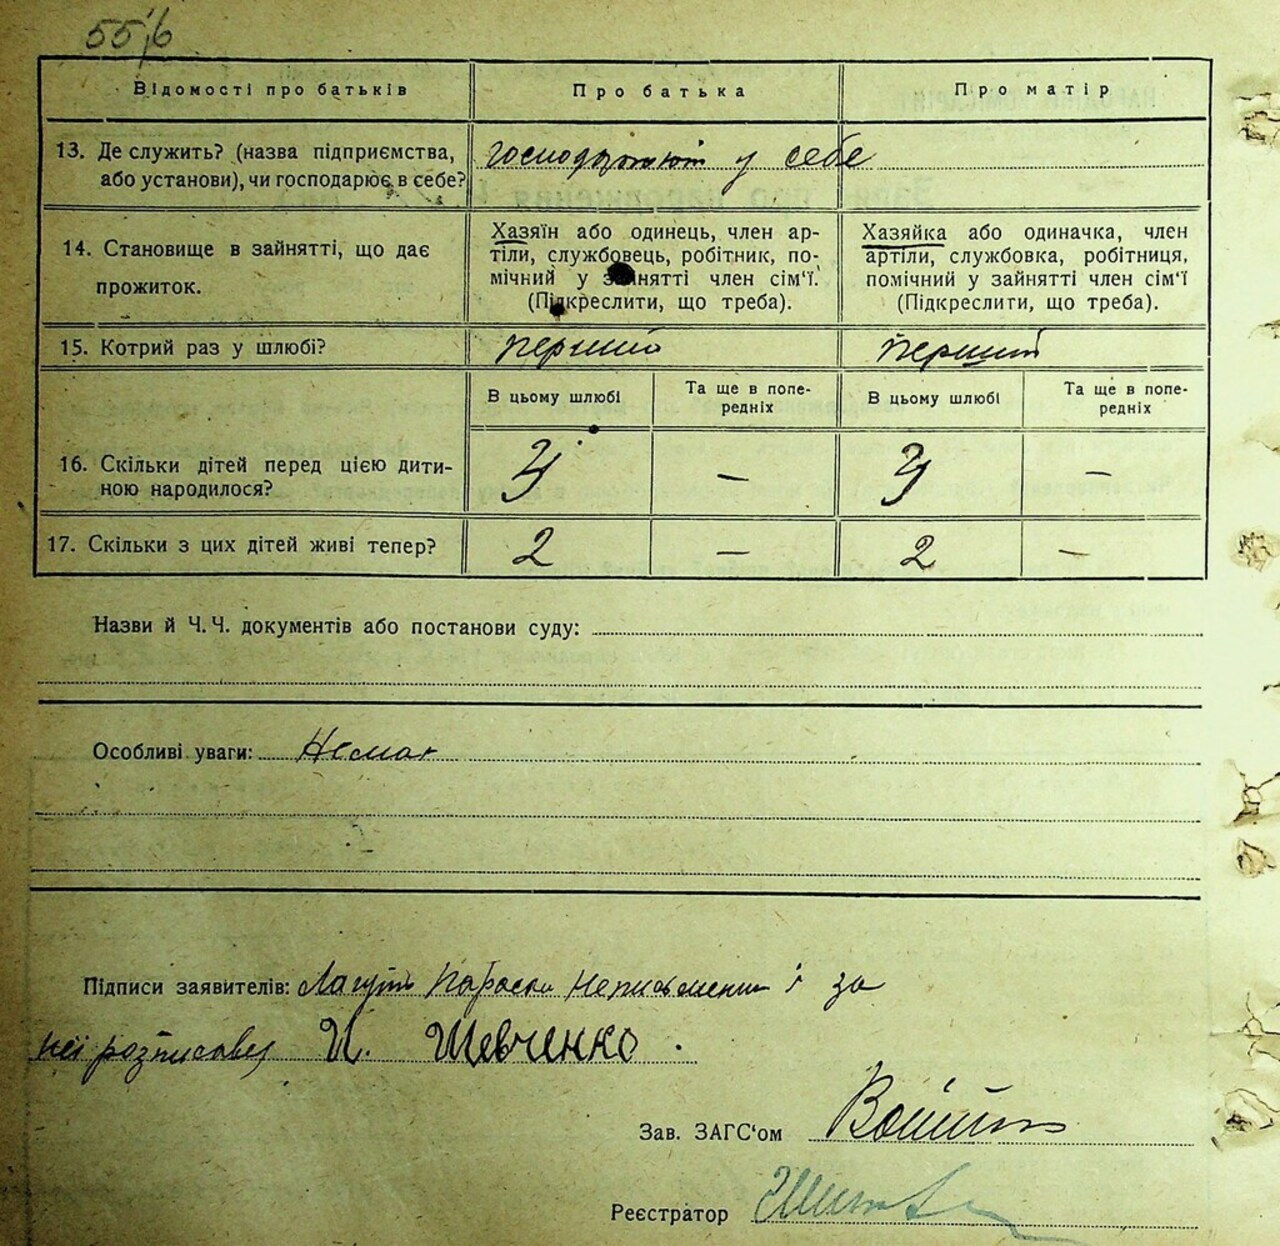 Відомості про батьків
Про батька
Про матір
13. Де служить? (назва підприємства,
або установи), чи господарює в себе?
господарюют у себе
14. Становище в зайнятті, що дає
прожиток.
Хазяїн або одинець, член ар-
тіли, службовець, робітник, по-
мічний у зайнятті член сім‘ї.
(Підкреслити, що треба).
Хазяйка або одиначка, член
артіли, службовка, робітниця,
помічний у зайнятті член сім‘ї
(Підкреслити, що треба).
15. Котрий раз у шлюбі?
перший
перший
В цьому шлюбі
Та ще в попе-
редніх
В цьому шлюбі
Та ще в попе-
редніх
16. Скільки дітей перед цією дити-
ною народилося?
—
—
17. Скільки з цих дітей живі тепер?
2
—
2
—
Назви й Ч.Ч. документів або постанови суду:
Особливі уваги: Немає
Підписи заявителів: Параски неписьменний і за
неї розписався И. Шевченко.
Зав. ЗАГС‘ом
Реєстратор